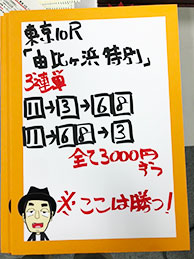 東京10R
「由比ヶ浜特別」
3連単
11→3→6 8
11→6 8→3
全て3000円
ずつ
※ここは勝つ!